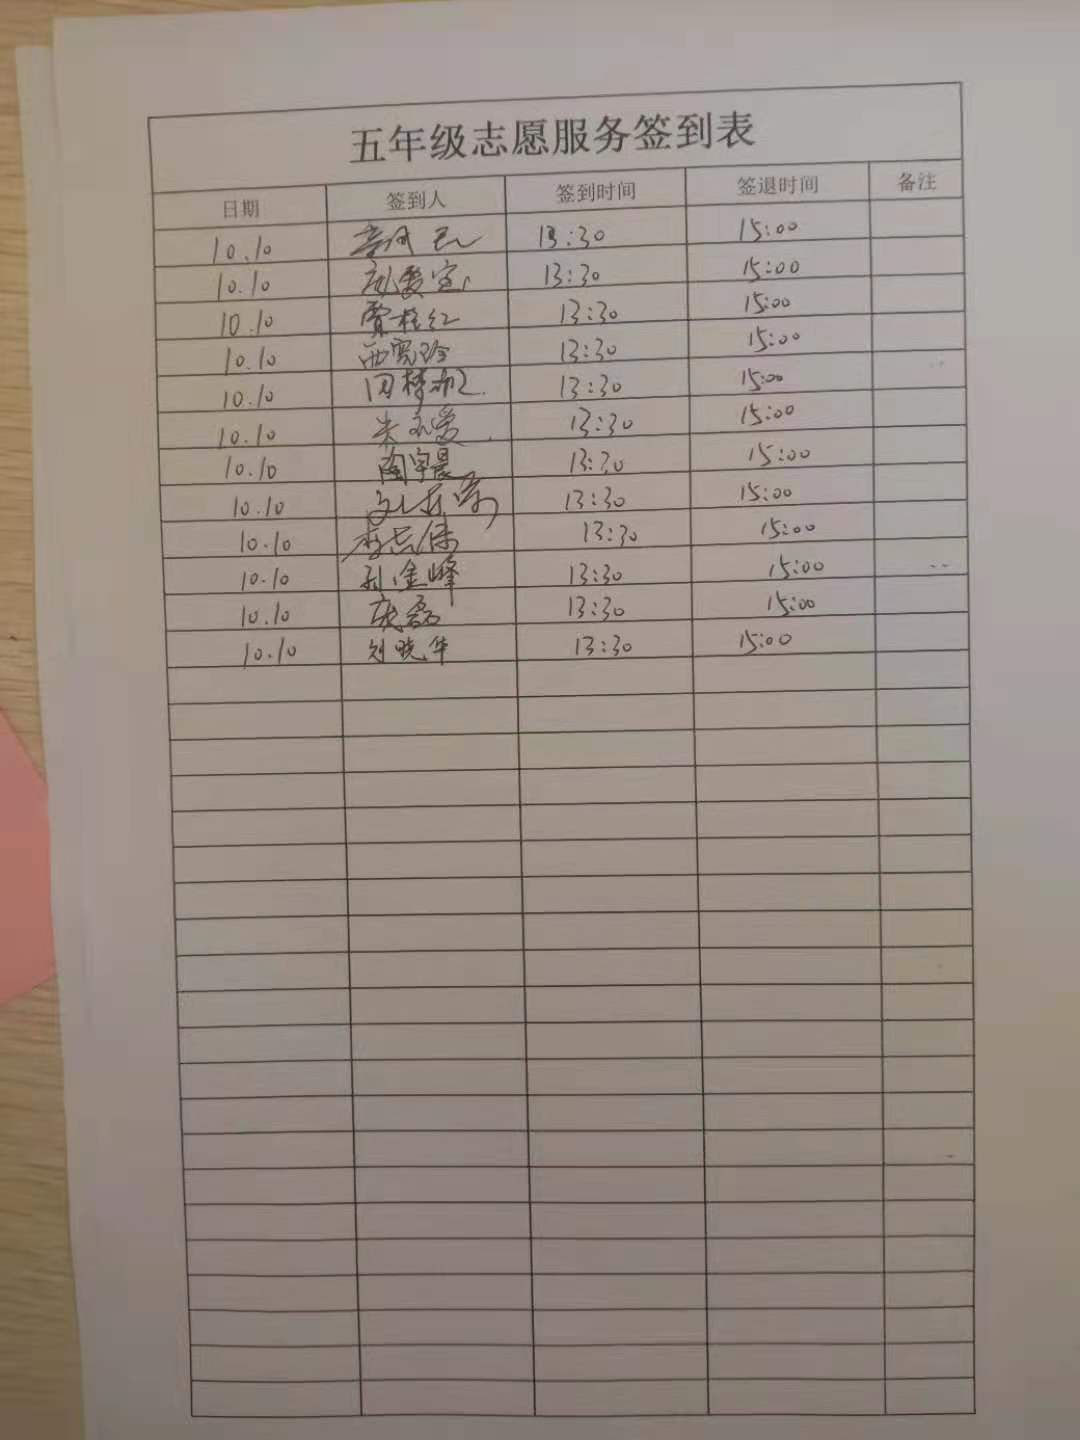 五年级志愿服务签到表
日期 签到人 签到时间 签退时间 备注
10.10 13:30 15:00
10.10 13:30 15:00
10.10 贾桂红 13:30 15:00
10.10 13:30 15:00
10.10 13:30 15:00
10.10 13:30 15:00
10.10 陶宇晨 13:30 15:00
10.10 13:30 15:00
10.10 李志保 13:30 15:00
10.10 孙金峰 13:30 15:00
10.10 庞磊 13:30 15:00
10.10 刘晓华 13:30 15:00